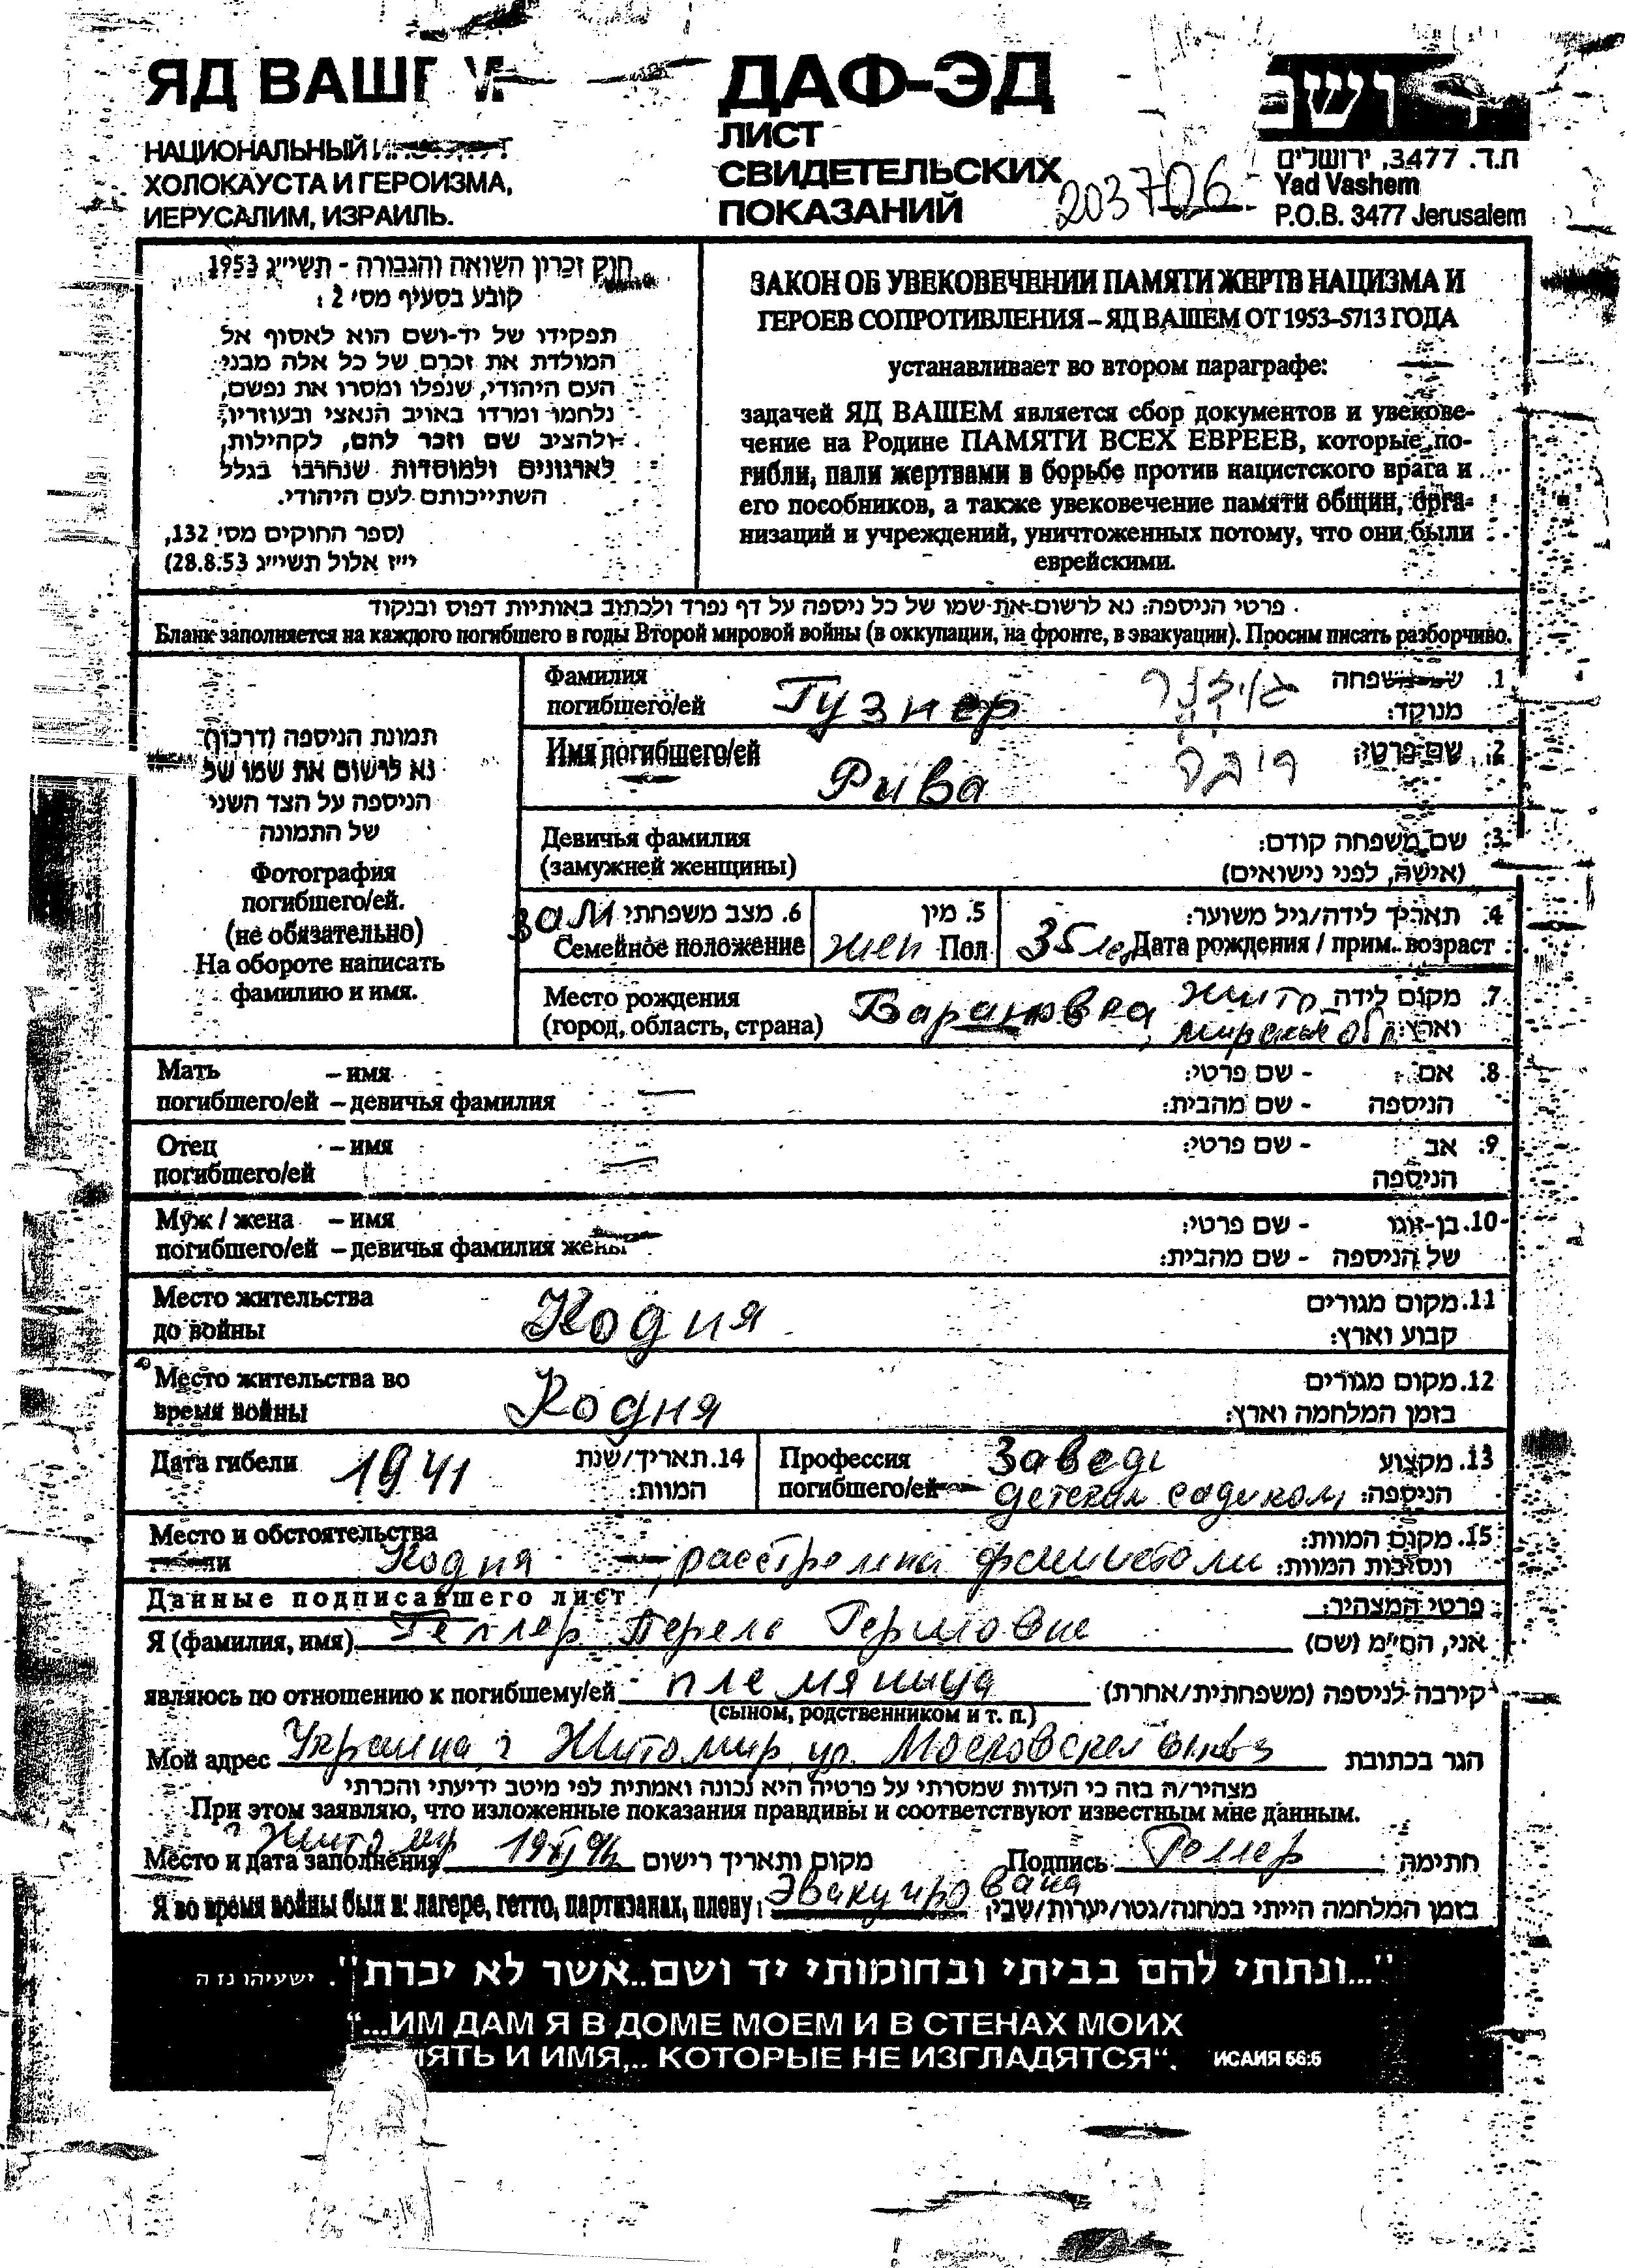 ЯД ВАШЕМ
НАЦИОНАЛЬНЫЙ
ХОЛОКАУСТА И ГЕРОИЗМА,
ИЕРУСАЛИМ, ИЗРАИЛЬ.
ДАФ-ЭД
ЛИСТ
СВИДЕТЕЛЬСКИХ
ПОКАЗАНИЙ
203706
ת.ד. 3477, ירושלים
Yad Vashem
P.O.B. 3477 Jerusalem
חוק זכרון השואה והגבורה - תשי״ג 1953
קובע בסעיף מס׳ 2:
תפקידו של יד-ושם הוא לאסוף אל
המולדת את זכרם של כל אלה מבני
העם היהודי, שנפלו ומסרו את נפשם,
נלחמו ומרדו באויב הנאצי ובעוזריו,
ולהציב שם וזכר להם, לקהילות,
לארגונים ולמוסדות שנחרבו בגלל
השתייכותם לעם היהודי.
(ספר החוקים מס׳ 132,
י״ז אלול תשי״ג 28.8.53)
ЗАКОН ОБ УВЕКОВЕЧЕНИИ ПАМЯТИ ЖЕРТВ НАЦИЗМА И
ГЕРОЕВ СОПРОТИВЛЕНИЯ – ЯД ВАШЕМ ОТ 1953–5713 ГОДА
устанавливает во втором параграфе:
задачей ЯД ВАШЕМ является сбор документов и увекове-
чение на Родине ПАМЯТИ ВСЕХ ЕВРЕЕВ, которые по-
гибли, пали жертвами в борьбе против нацистского врага и
его пособников, а также увековечение памяти общин, орга-
низаций и учреждений, уничтоженных потому, что они были
еврейскими.
פרטי הניספה: נא לרשום את שמו של כל ניספה על דף נפרד ולכתוב באותיות דפוס ובנקוד
Бланк заполняется на каждого погибшего в годы Второй мировой войны (в оккупации, на фронте, в эвакуации). Просим писать разборчиво.
תמונת הניספה (דרכון)
נא לרשום את שמו של
הניספה על הצד השני
של התמונה
Фотография
погибшего/ей.
(не обязательно)
На обороте написать
фамилию и имя.
Фамилия
погибшего/ей Гузнер גוזנר
1. שם משפחה
מנוקד:
Имя погибшего/ей Рива ריבה 2. שם פרטי:
Девичья фамилия
(замужней женщины)
3. שם משפחה קודם:
(אישה, לפני נישואים)
зам 6. מצב משפחתי
Семейное положение
5. מין
жен Пол
4. תאריך לידה/גיל משוער:
35 Дата рождения / прим. возраст
Место рождения
(город, область, страна) Барановка, Жито
мирская обл
7. מקום לידה
וארץ:
Мать – имя
погибшего/ей – девичья фамилия
8. אם - שם פרטי:
הניספה - שם מהבית:
Отец – имя
погибшего/ей
9. אב - שם פרטי:
הניספה
Муж / жена – имя
погибшего/ей – девичья фамилия жены
10. בן-זוגו - שם פרטי:
של הניספה - שם מהבית:
Место жительства
до войны Кодня
11. מקום מגורים
קבוע וארץ:
Место жительства во
время войны Кодня
12. מקום מגורים
בזמן המלחמה וארץ:
Дата гибели 1941
14. תאריך/שנת
המוות:
Профессия
погибшего/ей Завед.
детским садиком
13. מקצוע
הניספה:
Место и обстоятельства
гибели Кодня — расстреляна фашистами
15. מקום המוות:
ונסיבות המוות:
Данные подписавшего лист
פרטי המצהיר:
Я (фамилия, имя) Геллер Перель Гершовна אני, הח״מ (שם)
являюсь по отношению к погибшему/ей племяница קירבה לניספה (משפחתית/אחרת)
(сыном, родственником и т. п.)
Мой адрес Украина, г Житомир, ул. Московская הגר בכתובת
מצהיר/ה בזה כי העדות שמסרתי על פרטיה היא נכונה ואמתית לפי מיטב ידיעתי והכרתי
При этом заявляю, что изложенные показания правдивы и соответствуют известным мне данным.
г Житомир
Место и дата заполнения מקום ותאריך רישום Подпись Геллер חתימה
Я во время войны был в: лагере, гетто, партизанах, плену: Эвакуирована בזמן המלחמה הייתי במחנה/גטו/יערות/שבי:
"...ונתתי להם בביתי ובחומותי יד ושם..אשר לא יכרת". ישעיהו נו ה
“...ИМ ДАМ Я В ДОМЕ МОЕМ И В СТЕНАХ МОИХ
ПАМЯТЬ И ИМЯ,.. КОТОРЫЕ НЕ ИЗГЛАДЯТСЯ“. ИСАИЯ 56:5